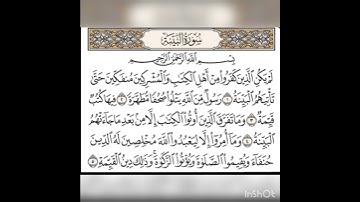 سُورَةُ البَيِّنَةِ
بِسْمِ اللَّهِ الرَّحْمَٰنِ الرَّحِيمِ
لَمْ يَكُنِ الَّذِينَ كَفَرُوا مِنْ أَهْلِ الْكِتَابِ وَالْمُشْرِكِينَ مُنفَكِّينَ حَتَّىٰ
تَأْتِيَهُمُ الْبَيِّنَةُ ١ رَسُولٌ مِّنَ اللَّهِ يَتْلُوا صُحُفًا مُّطَهَّرَةً ٢ فِيهَا كُتُبٌ
قَيِّمَةٌ ٣ وَمَا تَفَرَّقَ الَّذِينَ أُوتُوا الْكِتَابَ إِلَّا مِن بَعْدِ مَا جَاءَتْهُمُ
الْبَيِّنَةُ ٤ وَمَا أُمِرُوا إِلَّا لِيَعْبُدُوا اللَّهَ مُخْلِصِينَ لَهُ الدِّينَ
حُنَفَاءَ وَيُقِيمُوا الصَّلَوٰةَ وَيُؤْتُوا الزَّكَوٰةَ وَذَٰلِكَ دِينُ الْقَيِّمَةِ ٥
InShOt